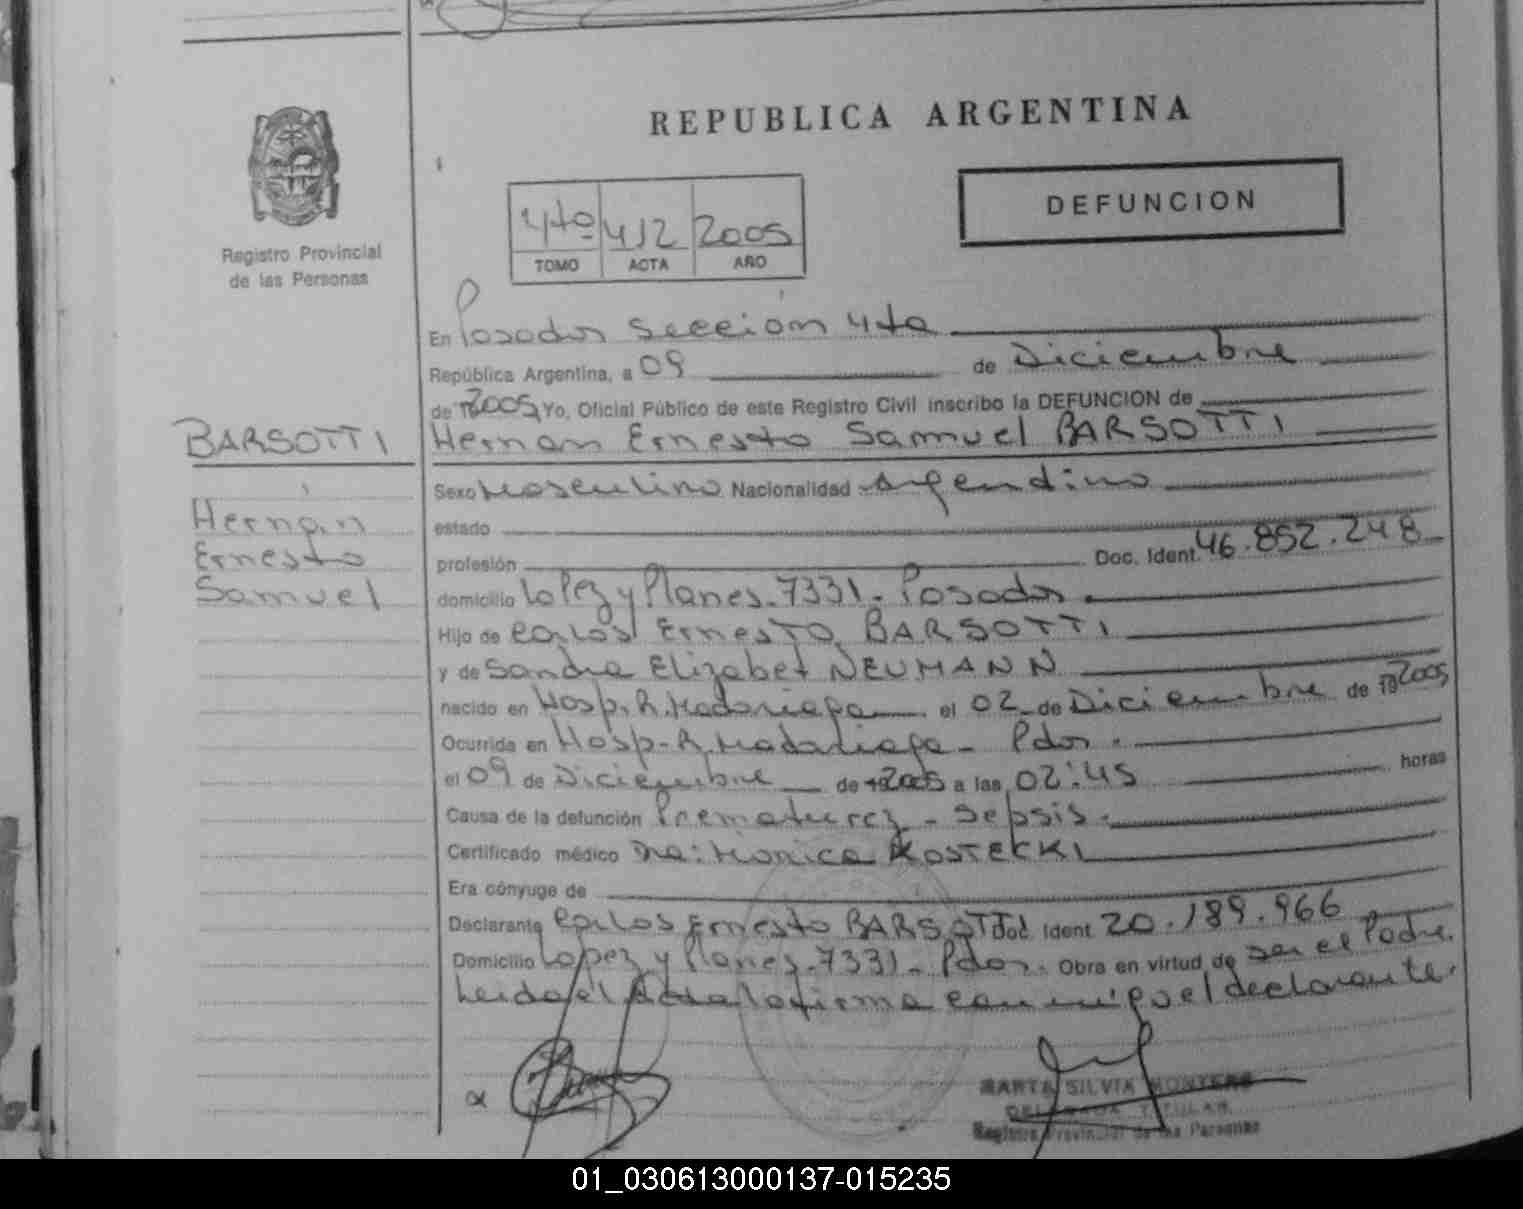 REPUBLICA ARGENTINA
DEFUNCION
4to 412 2005
TOMO ACTA AÑO
Registro Provincial
de las Personas
En Posadas Sección 4ta
República Argentina, a 09 de Diciembre
de 2005, Yo, Oficial Público de este Registro Civil inscribo la DEFUNCION de
BARSOTTI
Hernán
Ernesto
Samuel
Hernan Ernesto Samuel BARSOTTI
Sexo Masculino Nacionalidad Argentino
estado
profesión Doc. Ident. 46.852.248
domicilio Lopez y Planes. 7331. Posadas.
Hijo de Carlos Ernesto BARSOTTI
y de Sandra Elizabet NEUMANN
nacido en Hosp. R. Madariaga el 02 de Diciembre de 19 2005
Ocurrida en Hosp. R. Madariaga - Pdas.
el 09 de Diciembre de 19 2005 a las 02:45 horas
Causa de la defunción Prematurez - Sepsis.
Certificado médico Dra: Monica KOSTECKI
Era cónyuge de
Declarante Carlos Ernesto BARSOTTI Doc. Ident 20.189.966
Domicilio Lopez y Planes. 7331 - Pdas. Obra en virtud de ser el Padre.
Leida el Acta la firma conmigo el declarante.
MARTA SILVIA MONTERO
DELEGADA TITULAR
Registro Provincial de las Personas
01_030613000137-015235